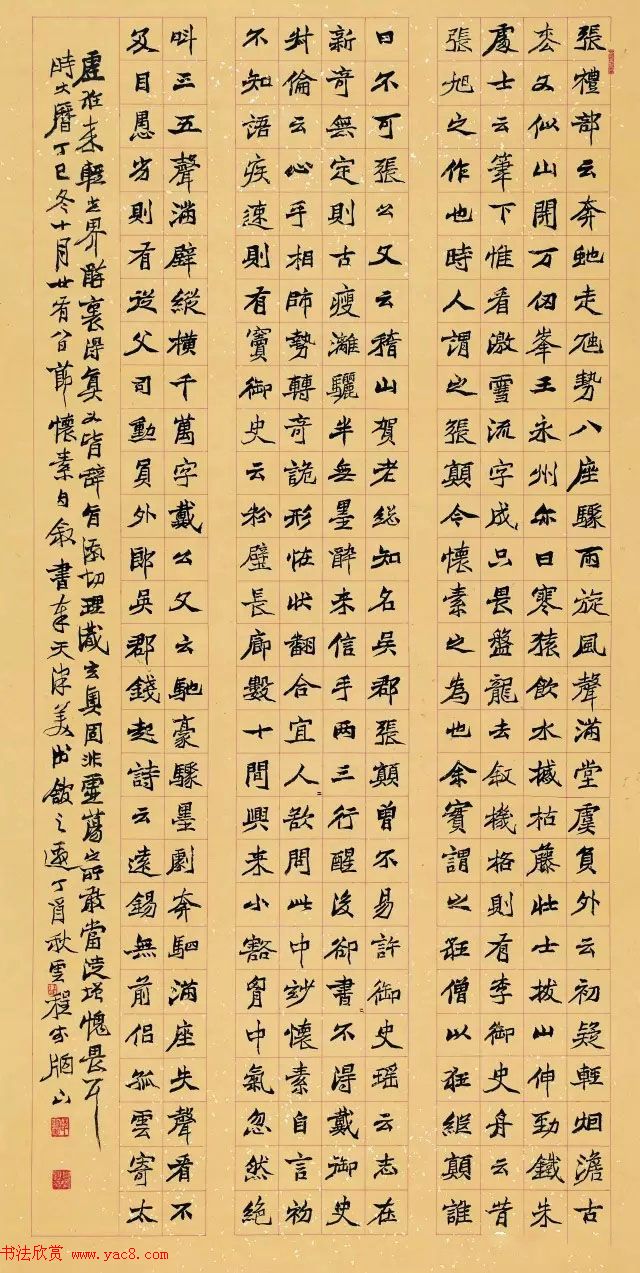 張禮部云奔虵走虺勢入座驟雨旋風聲滿堂盧員外云初疑輕烟澹古
枩又似山開万仞峯王永州尒曰寒猿飲水撼枯藤壯士拔山伸勁鐵朱
處士云筆下惟看激電流字成只畏盤龍去敘機格則有李御史舟云昔
張旭之作也時人謂之張顛今懷素之為也余實謂之狂僧以狂継顛誰
曰不可張公又云稽山賀老総知名吳郡張顛曾不易許御史瑤云志在
新奇無定則古瘦灕驪半無墨醉来信手兩三行醒後卻書不得戴御史
叔倫云心手相師勢轉奇詭形恠狀翻合宜人欲問此中妙懷素自言初
不知語疾速則有竇御史云粉壁長廊數十間興来小豁胷中氣忽然絕
叫三五聲滿壁縱横千萬字戴公又云馳豪驟墨劇奔駟滿座失聲看不
及目愚劣則有從父司勳員外郎吳郡錢起詩云遠錫無前侶孤雲寄太
虛狂来輕世界醉裏得真如皆辭旨激切理識玄奧固非虛蕩之所敢當徒增愧畏耳
時大曆丁巳冬十月廿有八日節懷素自敘書奉天津美術館之邀丁酉秋雲程書山
书法欣赏 www.yac8.com